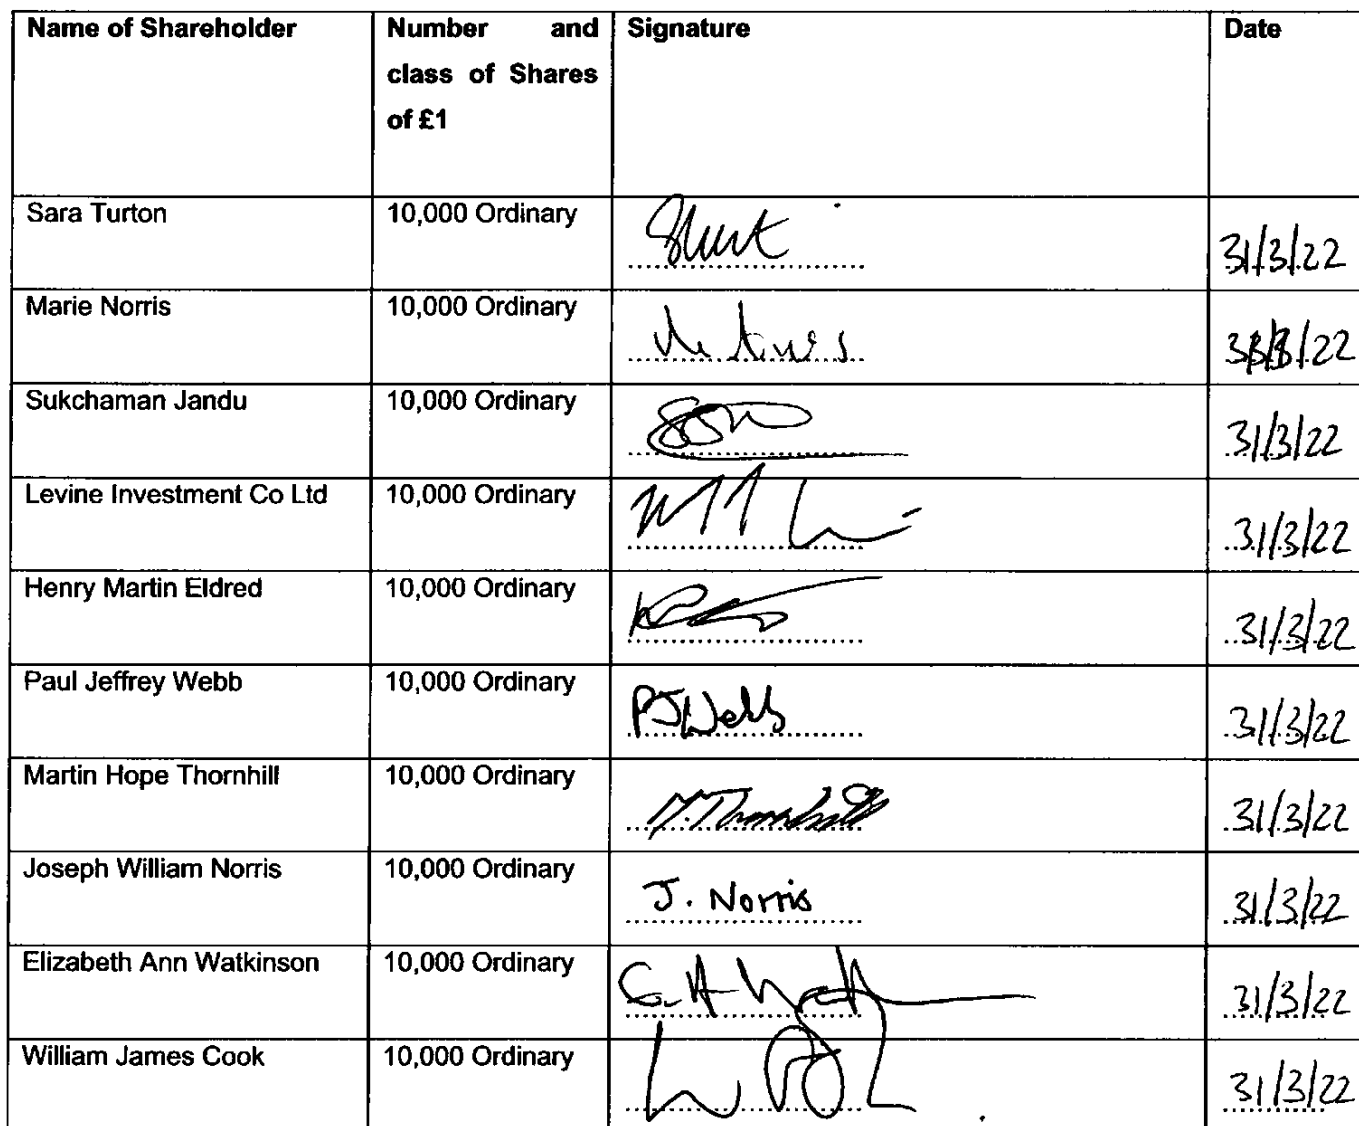 Name of Shareholder
Number and
class of Shares
of £1
Signature
Date
Sara Turton
10,000 Ordinary
31/3/22
Marie Norris
10,000 Ordinary
/22
Sukchaman Jandu
10,000 Ordinary
31/3/22
Levine Investment Co Ltd
10,000 Ordinary
31/3/22
Henry Martin Eldred
10,000 Ordinary
31/3/22
Paul Jeffrey Webb
10,000 Ordinary
PJWebb
31/3/22
Martin Hope Thornhill
10,000 Ordinary
M.Thornhill
31/3/22
Joseph William Norris
10,000 Ordinary
J. Norris
31/3/22
Elizabeth Ann Watkinson
10,000 Ordinary
31/3/22
William James Cook
10,000 Ordinary
31/3/22